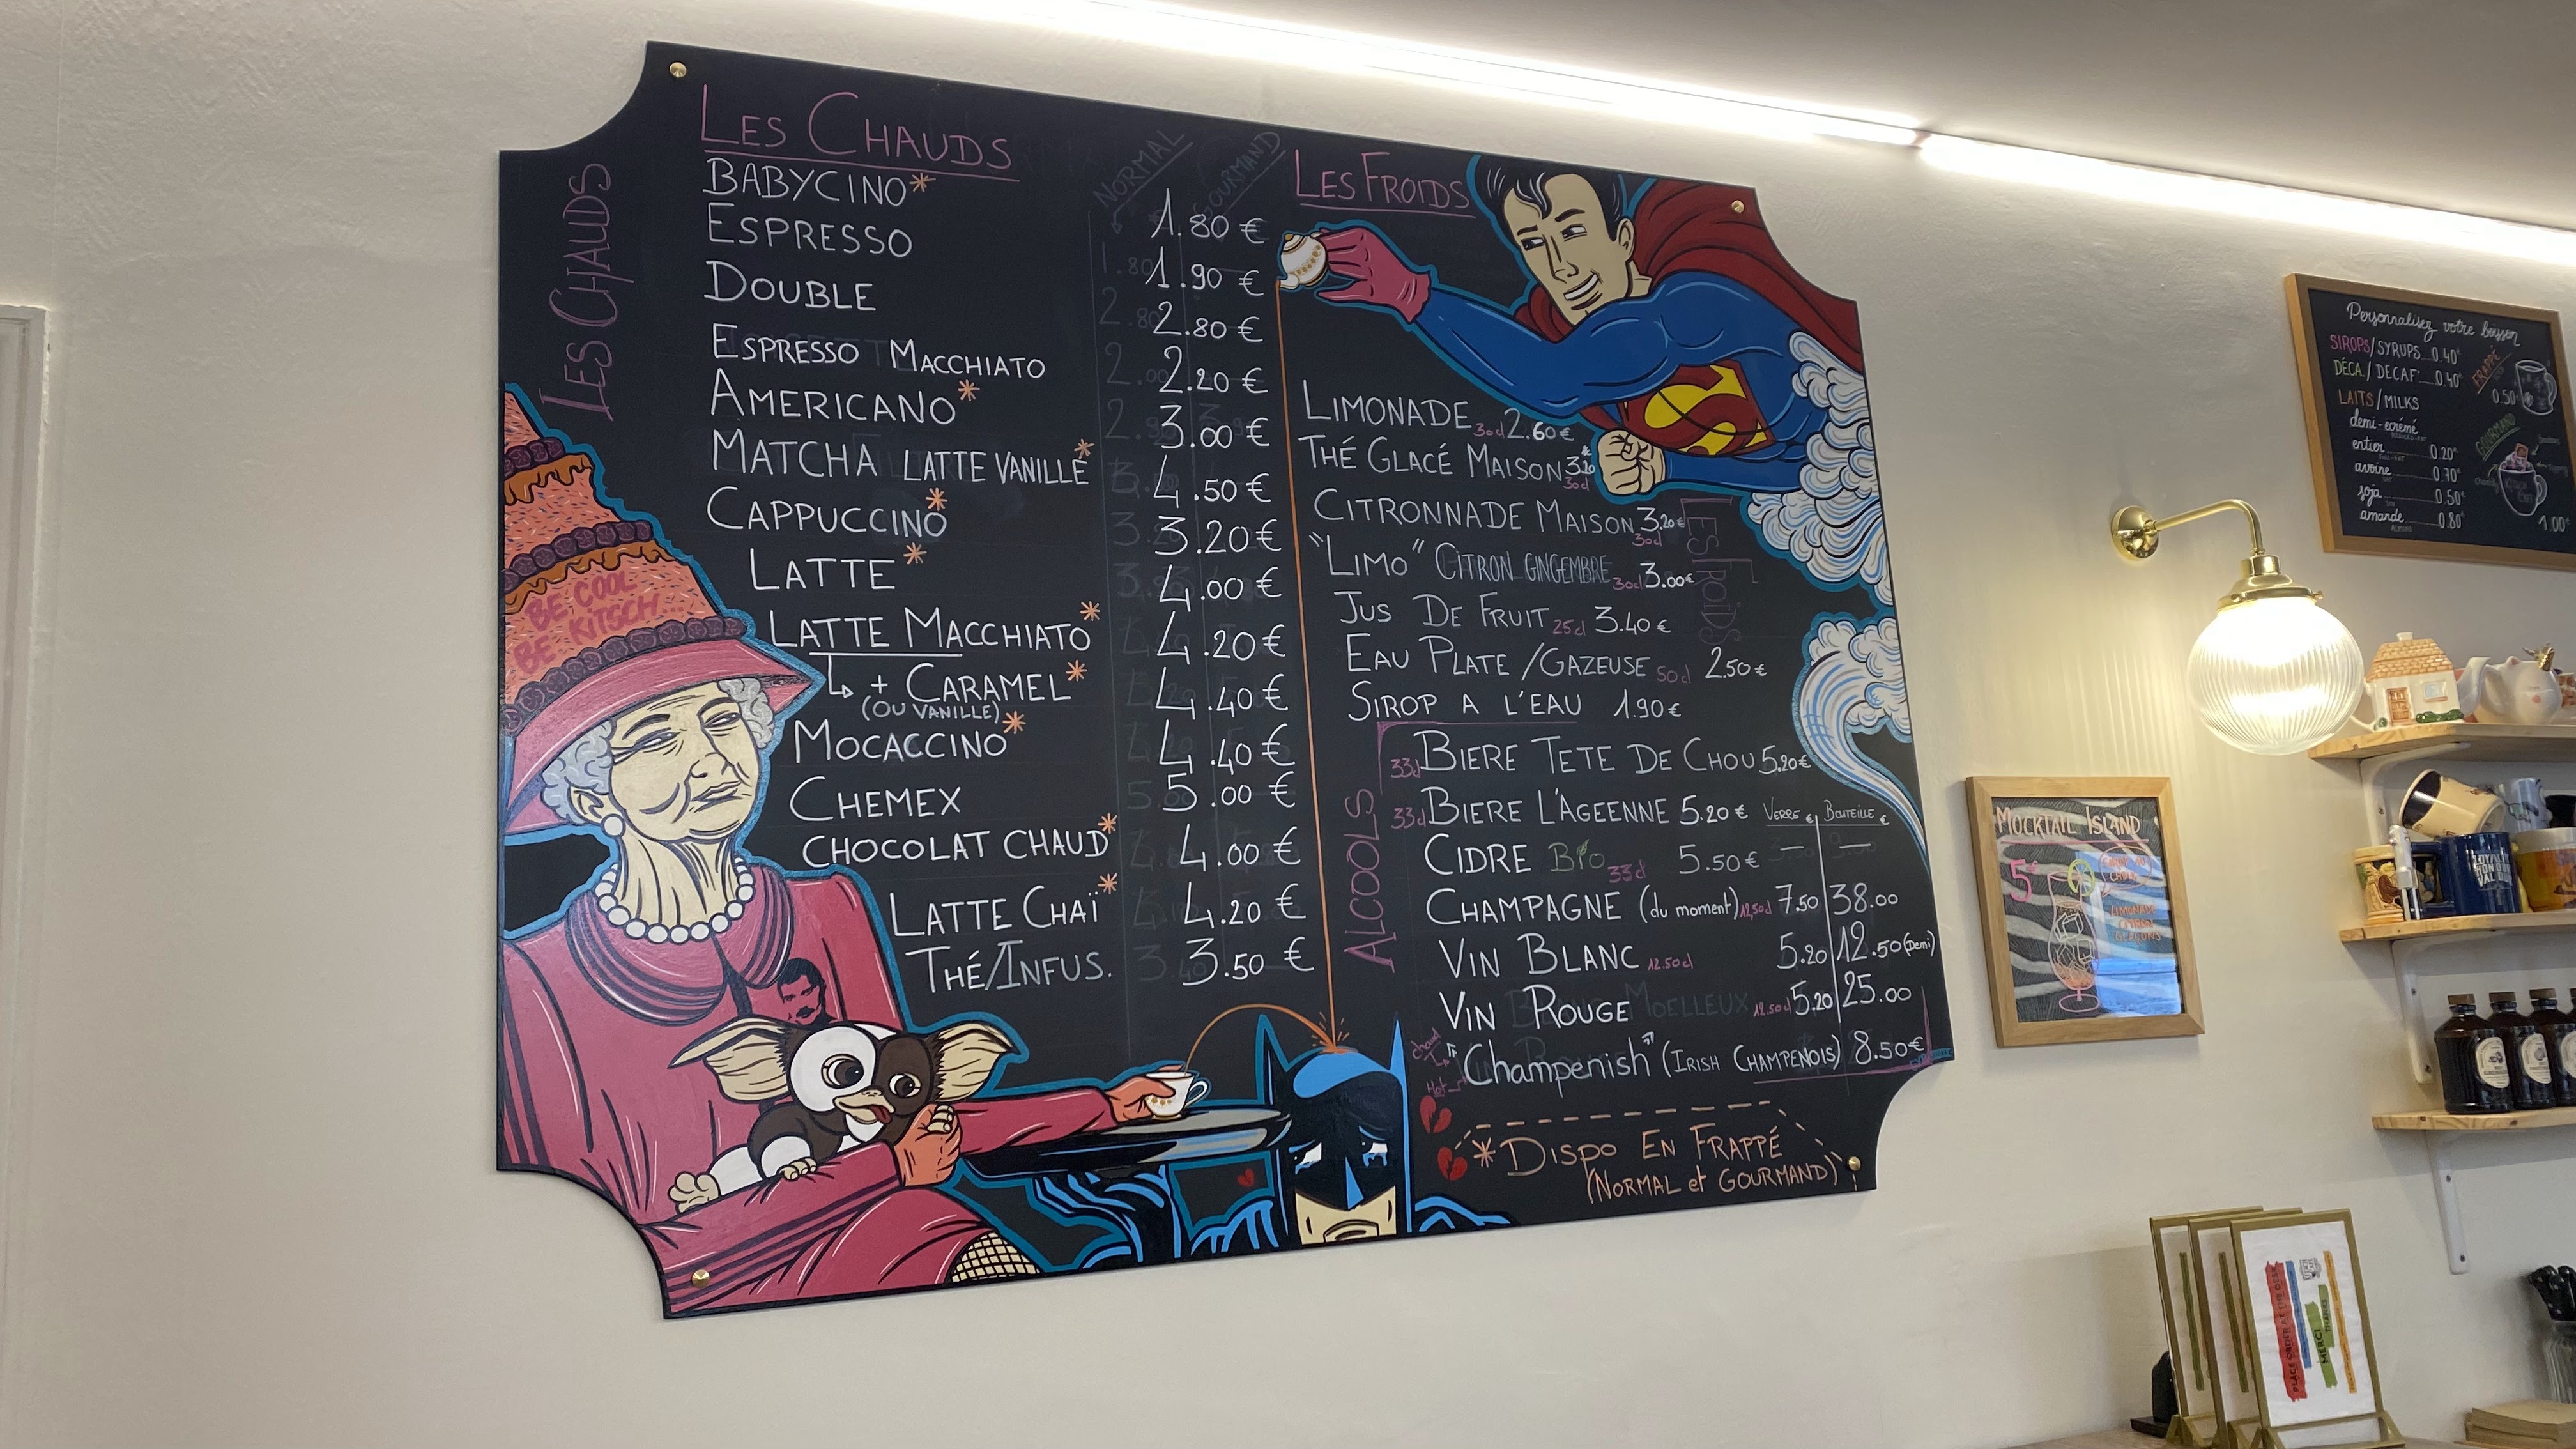 LES CHAUDS
LES CHAUDS
NORMAL
GOURMAND
BABYCINO* 1.80 €
ESPRESSO 1.90 €
DOUBLE 2.80 €
ESPRESSO MACCHIATO 2.20 €
AMERICANO* 3.00 €
MATCHA LATTE VANILLE* 4.50 €
CAPPUCCINO* 3.20 €
LATTE* 4.00 €
LATTE MACCHIATO* 4.20 €
↳ + CARAMEL* 4.40 €
(OU VANILLE)
MOCACCINO* 4.40 €
CHEMEX 5.00 €
CHOCOLAT CHAUD* 4.00 €
LATTE CHAÏ* 4.20 €
THÉ/INFUS. 3.50 €
BE COOL
BE KITSCH...
LES FROIDS
LES FROIDS
LIMONADE 30cl 2.60 €
THÉ GLACÉ MAISON 30cl
CITRONNADE MAISON 30cl 3.20 €
"LIMO" CITRON GINGEMBRE 30cl 3.00 €
JUS DE FRUIT 25cl 3.40 €
EAU PLATE/GAZEUSE 50cl 2.50 €
SIROP A L'EAU 1.90 €
ALCOOLS
33cl BIERE TETE DE CHOU 5.20 €
33cl BIERE L'AGEENNE 5.20 €
VERRE € BOUTEILLE €
CIDRE BIO 33cl 5.50 € — —
CHAMPAGNE (du moment) 12,50cl 7.50 38.00
VIN BLANC 12.50cl 5.20 12.50 (Demi)
VIN ROUGE 12.50cl 5.20 25.00
chaud
Hot
"Champenish" (IRISH CHAMPENOIS) 8.50 €
* DISPO EN FRAPPÉ
(NORMAL et GOURMAND)
Personnalisez votre boisson
SIROPS/SYRUPS 0.40€
DÉCA./DECAF' 0.40€
FRAPPÉ
0.50€
LAITS/MILKS
demi-ecrémé
entier 0.20€
avoine 0.70€
soja 0.50€
amande 0.80€
GOURMAND
1.00€
MOCKTAIL ISLAND
5€
LIMONADE
CITRON
GLAÇONS
PLACE ORDER AT THE DESK
MERCI